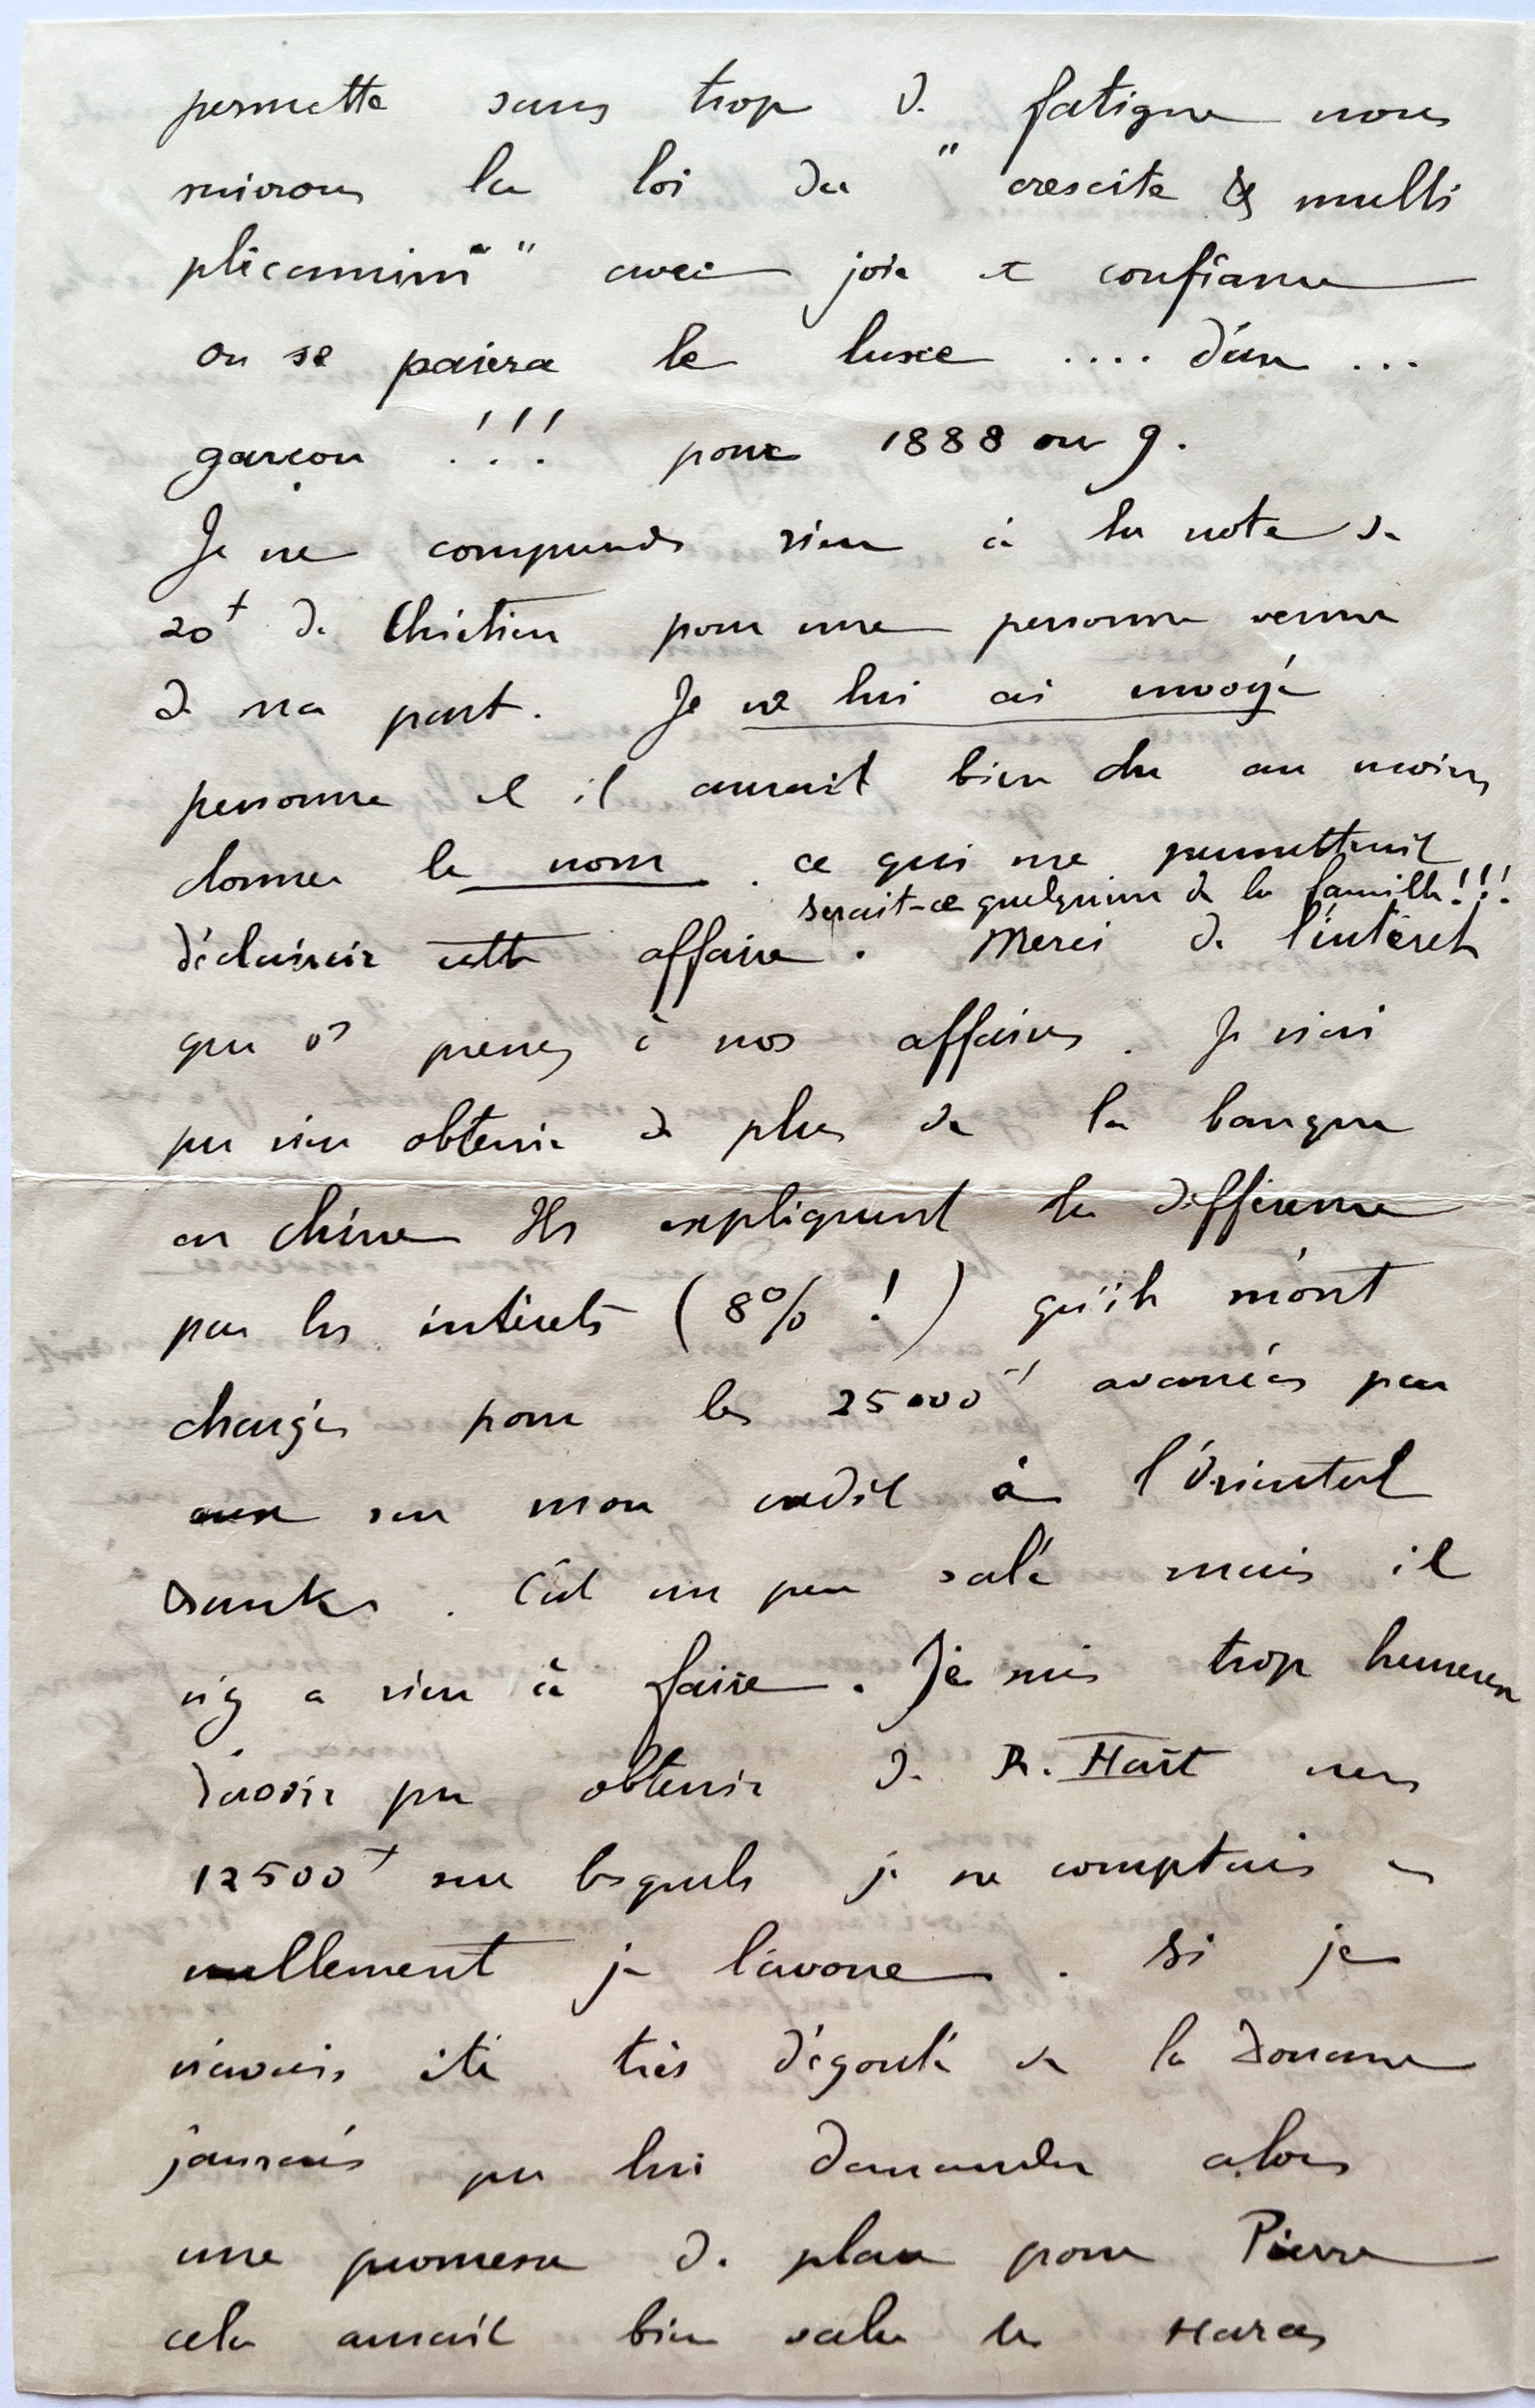 permette sans trop de fatigue nous
suivrons la loi du " crescite & multi
plicamini " avec joie et confiance
on se paiera le luxe .... d'un ...
garçon !!! pour 1888 ou 9.
Je ne comprends rien à la note de
20f de Chrétien pour une personne venue
de ma part. Je ne lui ai envoyé
personne et il aurait bien du au moins
donner le nom . ce qui me permettrait
serait-ce quelqu'un de la famille !!!
d'éclaircir cette affaire . Merci de l'intéret
que vs prenez à nos affaires . Je n'ai
pu rien obtenir de plus de la banque
en Chine Ils expliquent la différence
par les intérets (8% !) qu'ils m'ont
chargés pour les 25000f avancés par
eux sur mon crédit à l'Oriental
Bank . C'est un peu salé mais il
n'y a rien à faire . Je suis trop heureux
d'avoir pu obtenir de R. Hart mes
12500f sur lesquels je ne comptais
nullement je l'avoue . Si je
n'avais été très dégouté de la Douane
j'aurais pu lui demander alors
une promesse de place pour Pierre
cela aurait bien valu les Haras